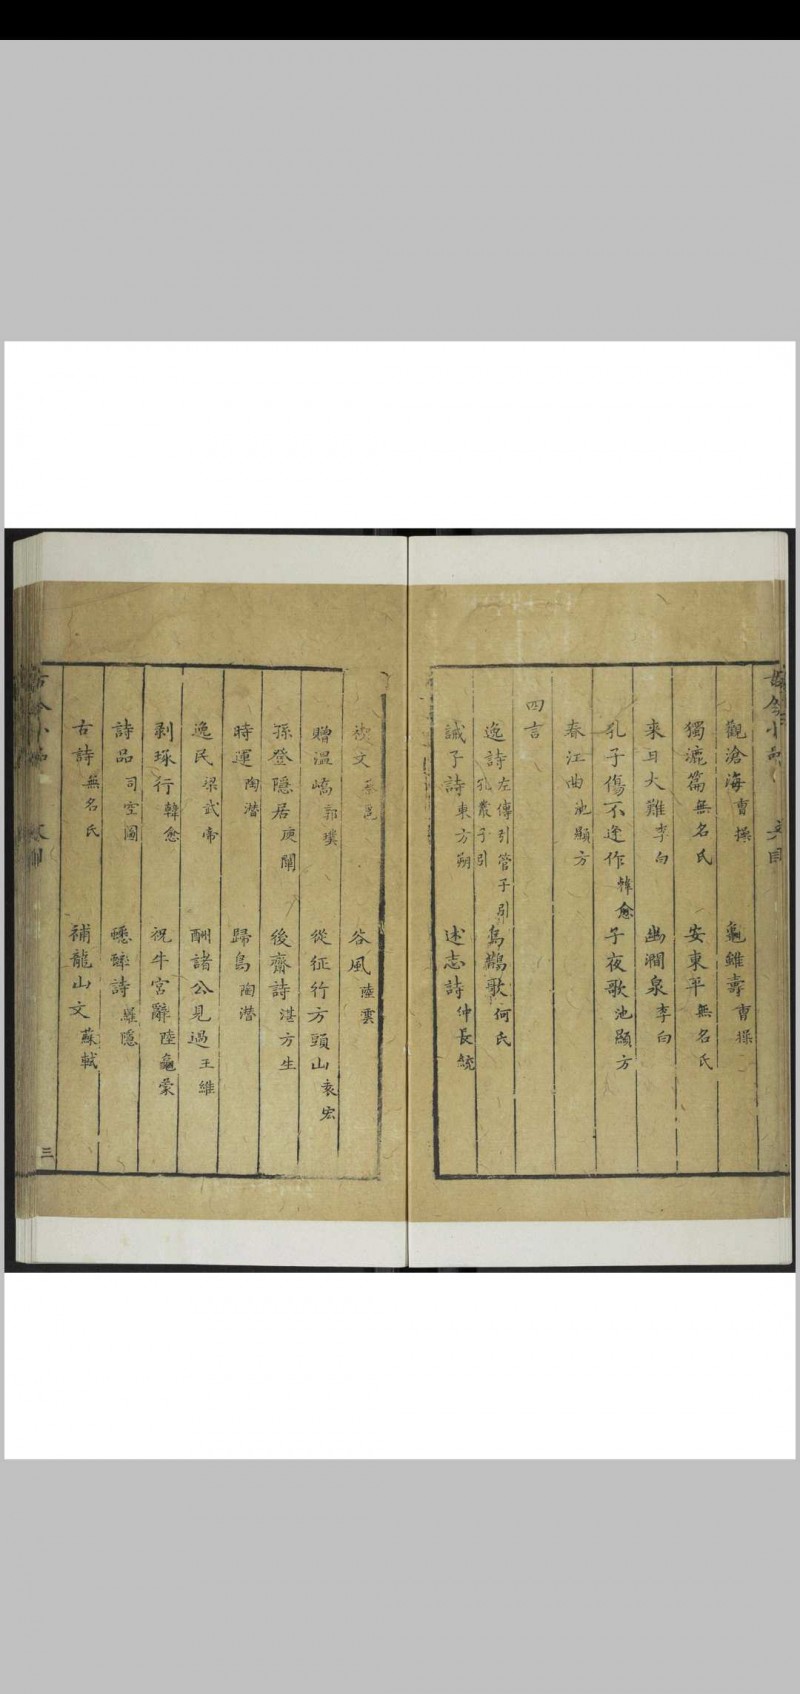 觀滄海曹操 龜雖壽曹操
獨漉篇無名氏 安東平無名氏
來日大難李白 幽澗泉李白
孔子傷不逢作韓愈 子夜歌池顯方
春江曲池顯方
四言
逸詩左傳引管子引孔叢子引 烏鵲歌何氏
誡子詩東方朔 述志詩仲長統
文蔡邕 谷風陸雲
贈溫嶠郭璞 從征行方頭山袁宏
孫登隱居庾闡 後齋詩湛方生
時運陶潛 歸鳥陶潛
逸民梁武帝 酬諸公見過王維
剥琢行韓愈 祝牛宮辭陸龜蒙
詩品司空圖 蟋蟀詩羅隱
古詩無名氏 補龍山文蘇軾
三